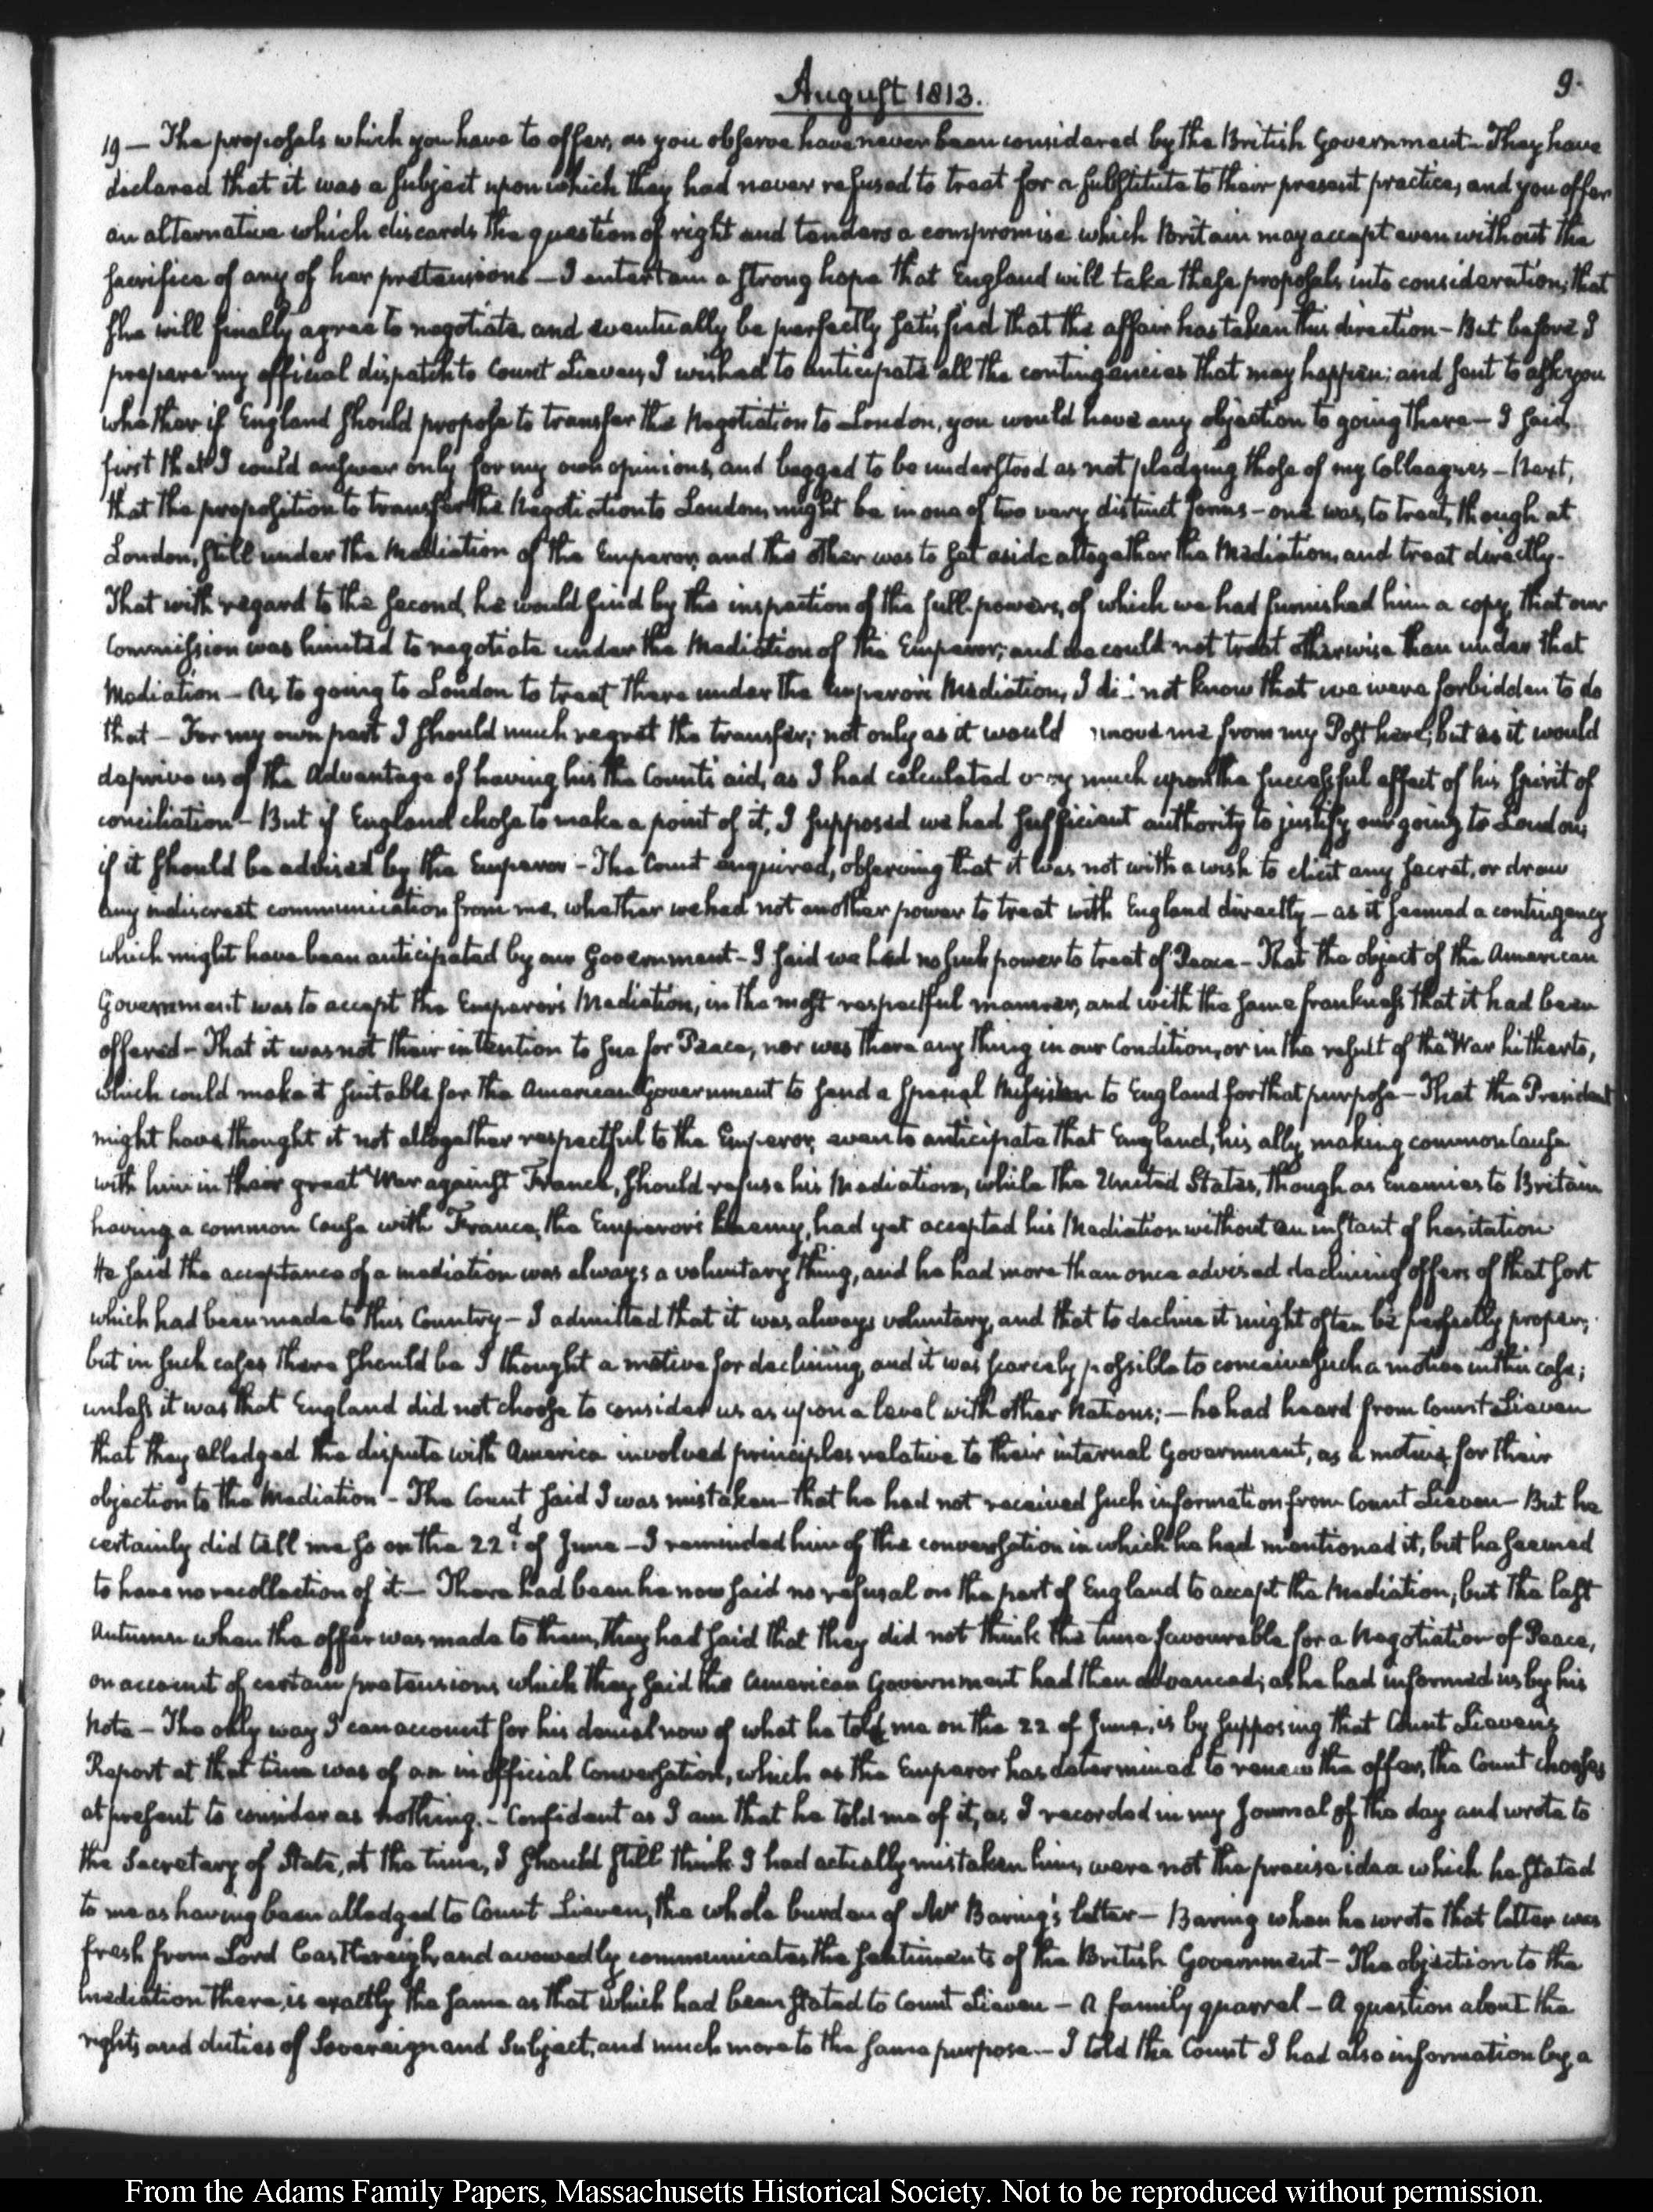 August 1813.
9.
19 — The proposals which you have to offer, as you observe have never been considered by the British Government — They have
declared that it was a subject upon which they had never refused to treat for a substitute to their present practice, and you offer
an alternative which discards the question of right and tenders a compromise which Britain may accept even without the
sacrifice of any of her pretensions — I entertain a strong hope that England will take these proposals into consideration; that
she will finally agree to negotiate and eventually be perfectly satisfied that the affair has taken this direction — But before I
prepare my official dispatch to Count Lieven, I wished to anticipate all the contingencies that may happen; and sent to ask you
whether if England should propose to transfer the Negotiation to London, you would have any objection to going there — I said,
first that I could answer only for my own opinions, and begged to be understood as not pledging those of my Colleagues — Next,
that the proposition to transfer the Negotiation to London, might be in one of two very distinct forms — one was, to treat, though at
London, still under the Mediation of the Emperor, and the other was to set aside altogether the Mediation, and treat directly.
That with regard to the second, he would find by the inspection of the full-powers, of which we had furnished him a copy, that our
Commission was limited to negotiate under the Mediation of the Emperor; and we could not treat otherwise than under that
Mediation — As to going to London to treat there under the Emperor's Mediation, I did not know that we were forbidden to do
that — For my own part I should much regret the transfer; not only as it would remove me from my Post here; but as it would
deprive us of the Advantage of having his the Count's aid, as I had calculated very much upon the successful effect of his Spirit of
conciliation — But if England chose to make a point of it, I supposed we had sufficient authority to justify our going to London,
if it should be advised by the Emperor — The Count enquired, observing that it was not with a wish to elicit any secret, or draw
any indiscreet communication from me, whether we had not another power to treat with England directly — as it seemed a contingency
which might have been anticipated by our Government — I said we had no such power to treat of Peace — That the object of the American
Government was to accept the Emperor's Mediation, in the most respectful manner, and with the same frankness that it had been
offered — That it was not their intention to sue for Peace, nor was there any thing in our Condition, or in the result of the War hitherto,
which could make it suitable for the American Government to send a special Mission to England for that purpose — That the President
might have thought it not altogether respectful to the Emperor, even to anticipate that England, his ally, making common Cause
with him in their great War against France, should refuse his Mediation, while the United States, though as Enemies to Britain
having a common Cause with France, the Emperor's Enemy, had yet accepted his Mediation without an instant of hesitation
He said the acceptance of a mediation was always a voluntary thing, and he had more than once advised declining offers of that sort
which had been made to this Country — I admitted that it was always voluntary, and that to decline it might often be perfectly proper;
but in such cases there should be I thought a motive for declining, and it was scarcely possible to conceive such a motive in this case;
unless it was that England did not choose to consider us as upon a level with other Nations; — he had heard from Count Lieven
that they alledged the dispute with America involved principles relative to their internal Government, as a motive for their
objection to the Mediation — The Count said I was mistaken — that he had not received such information from Count Lieven — But he
certainly did tell me so on the 22d. of June — I reminded him of the conversation in which he had mentioned it, but he seemed
to have no recollection of it — There had been he now said no refusal on the part of England to accept the Mediation, but the last
Autumn when the offer was made to them, they had said that they did not think the time favourable for a Negotiation of Peace,
on account of certain pretensions which they said the American Government had then advanced; as he had informed us by his
Note — The only way I can account for his denial now of what he told me on the 22 of June, is by supposing that Count Lieven's
Report at that time was of an inofficial Conversation, which as the Emperor has determined to renew the offer, the Count chooses
at present to consider as nothing. — Confident as I am that he told me of it, as I recorded in my Journal of the day and wrote to
the Secretary of State, at the time, I should still think I had actually mistaken him, were not the precise idea which he stated
to me as having been alledged to Count Lieven, the whole burden of Mr. Baring's letter — Baring when he wrote that letter was
fresh from Lord Castlereigh, and avowedly communicates the sentiments of the British Government — The objection to the
mediation there, is exactly the same as that which had been stated to Count Lieven — A family quarrel — A question about the
rights and duties of Sovereign and Subject, and much more to the same purpose — I told the Count I had also information by a
From the Adams Family Papers, Massachusetts Historical Society. Not to be reproduced without permission.